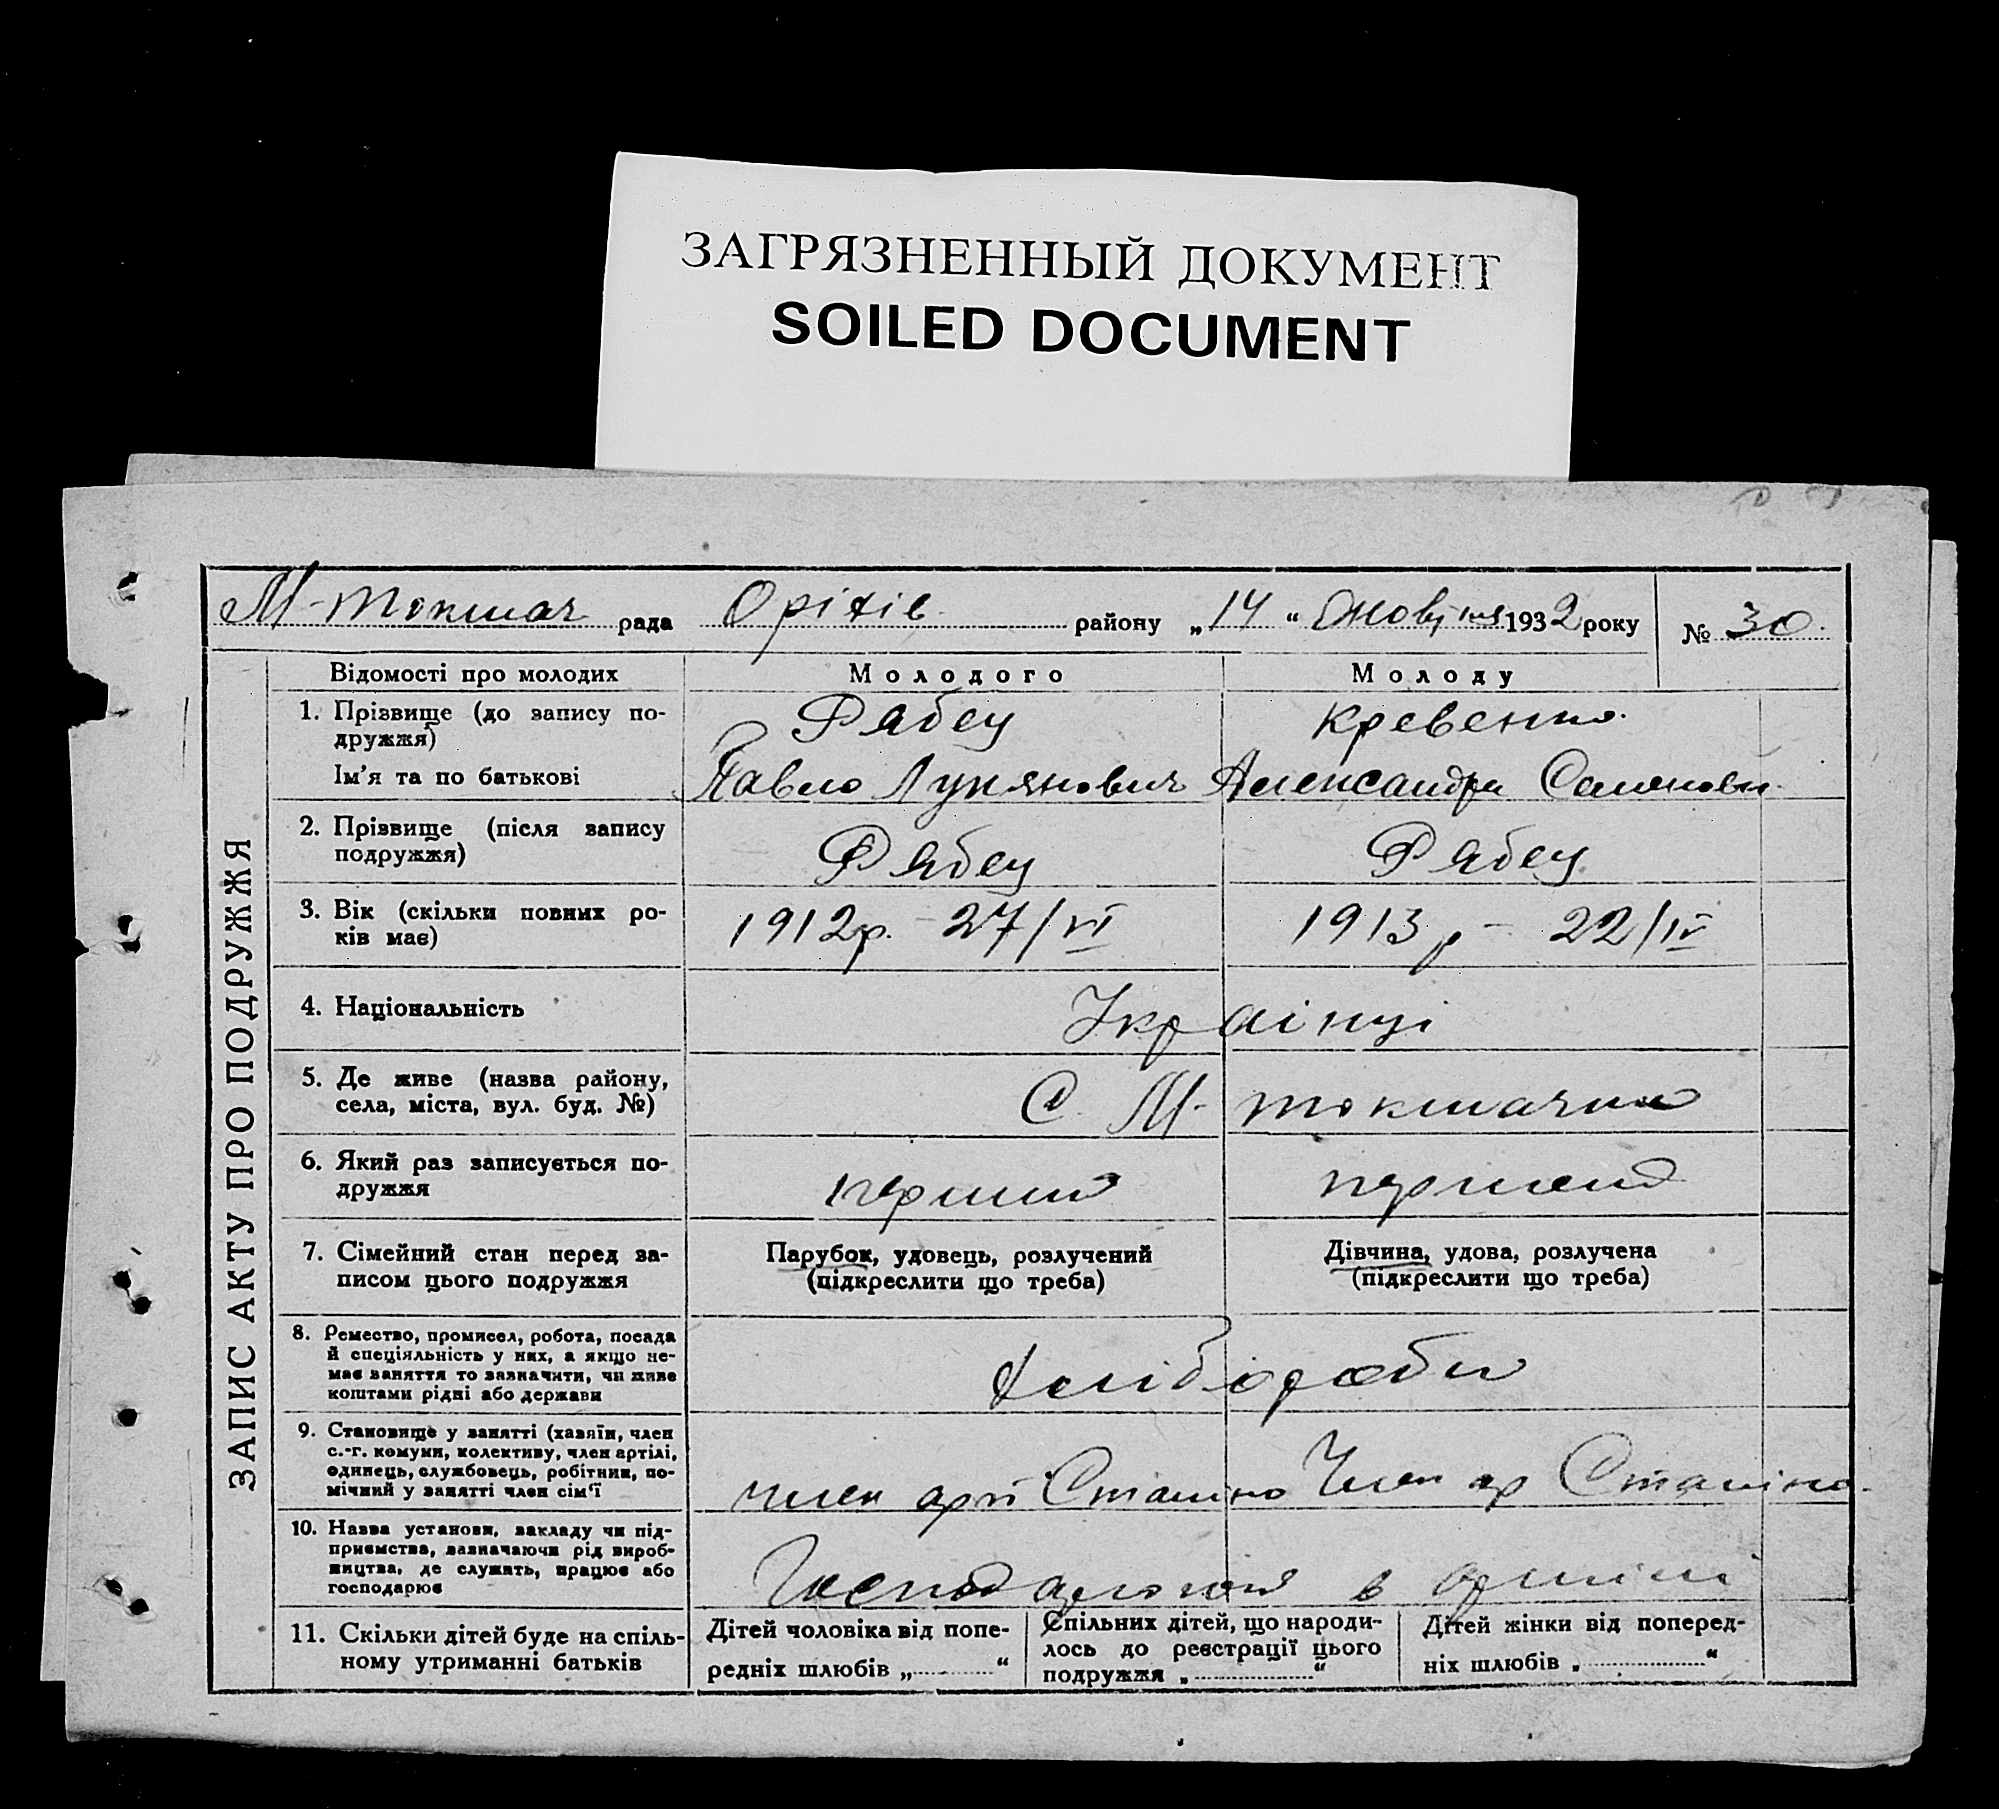 ЗАГРЯЗНЕННЫЙ ДОКУМЕНТ
SOILED DOCUMENT
М-Токмач рада Оріхів району „14“ Жовтня 1932 року № 30.
ЗАПИС АКТУ ПРО ПОДРУЖЖЯ
Відомості про молодих
Молодого
Молоду
1. Прізвище (до запису по-
дружжя)
Рябец
Кревенко.
Ім'я та по батькові
Павло Лукянович
Александра Семеновн.
2. Прізвище (після запису
подружжя)
Рябец
Рябец
3. Вік (скільки повних ро-
ків має)
1912р. - 27/VI
1913р - 22/IV
4. Національність
Українці
5. Де живе (назва району,
села, міста, вул. буд. №)
С. М-Токмачка
6. Який раз записується по-
дружжя
перший
7. Сімейний стан перед за-
писом цього подружжя
Парубок, удовець, розлучений
(підкреслити що треба)
Дівчина, удова, розлучена
(підкреслити що треба)
8. Ремество, промисел, робота, посада
й спеціяльність у них, а якщо не-
має заняття то зазначити, чи живе
коштами рідні або держави
Хлібороби
9. Становище у занятті (хазяїн, член
с.-г. комуни, колективу, член артілі,
одинець, службовець, робітник, по-
мічний у занятті член сім'ї
член арт Сталіно
Член ар Сталіно.
10. Назва установи, закладу чи під-
приємства, зазначаючи рід вироб-
ництва, де служить, працює або
господарює
в артілі
11. Скільки дітей буде на спіль-
ному утриманні батьків
Дітей чоловіка від попе-
редніх шлюбів „ “
Спільних дітей, що народи-
лось до реєстрації цього
подружжя „ “
Дітей жінки від поперед-
ніх шлюбів „ “